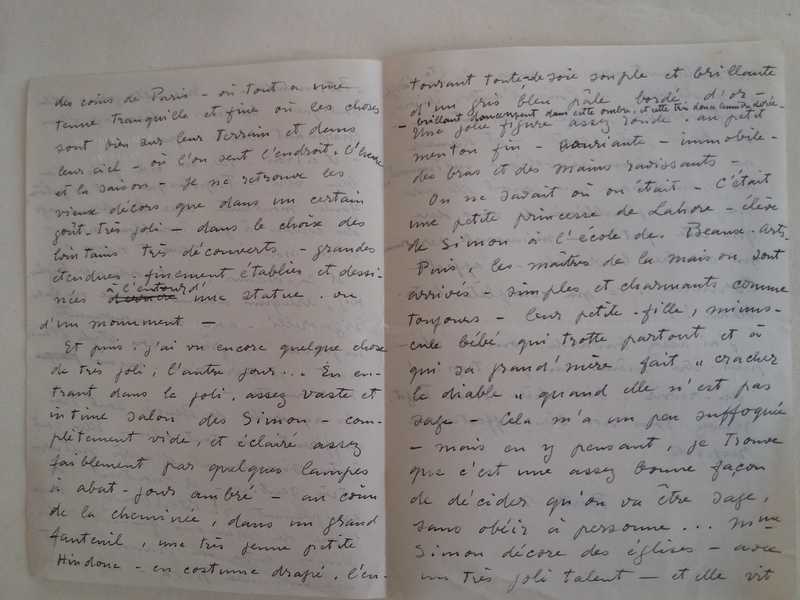 des coins de Paris – où tout a une
tenue tranquille et fine où les choses
sont bien sur leur terrain et dans
leur ciel – où l'on sent l'endroit, l'heure
et la saison – je ne retrouve les
vieux décors que dans un certain
goût très joli – dans le choix des
lointains très découverts – grandes
étendues finement établies et dessi-
nées à l'entour d'une statue ou
d'un monument –
Et puis, j'ai vu encore quelque chose
de très joli, l'autre jour... En en-
trant dans le joli, assez vaste et
intime salon des Simon – com-
plètement vide, et éclairé assez
faiblement par quelques lampes
à abat-jour ambré – au coin
de la cheminée, dans un grand
fauteuil, une très jeune petite
Hindoue – en costume drapé, l'en-
tourant toute de soie souple et brillante
d'un gris bleu pâle bordé d'or –
– brillant doucement dans cette ombre, et cette très douce lumière dorée –
Une jolie figure assez ronde, au petit
menton fin – souriante – immobile –
des bras et des mains ravissants –
On ne savait où on était – C'était
une petite princesse de Lahore – élève
de Simon à l'école des Beaux-Arts.
Puis, les maîtres de la maison sont
arrivés – simples et charmants comme
toujours – leur petite-fille, minus-
cule bébé, qui trotte partout et à
qui sa grand'mère fait „ cracher
le diable „ quand elle n'est pas
sage – Cela m'a un peu suffoquée
– mais en y pensant, je trouve
que c'est une assez bonne façon
de décider qu'on va être sage,
sans obéir à personne... Mme
Simon décore des églises – avec
un très joli talent – et elle vit